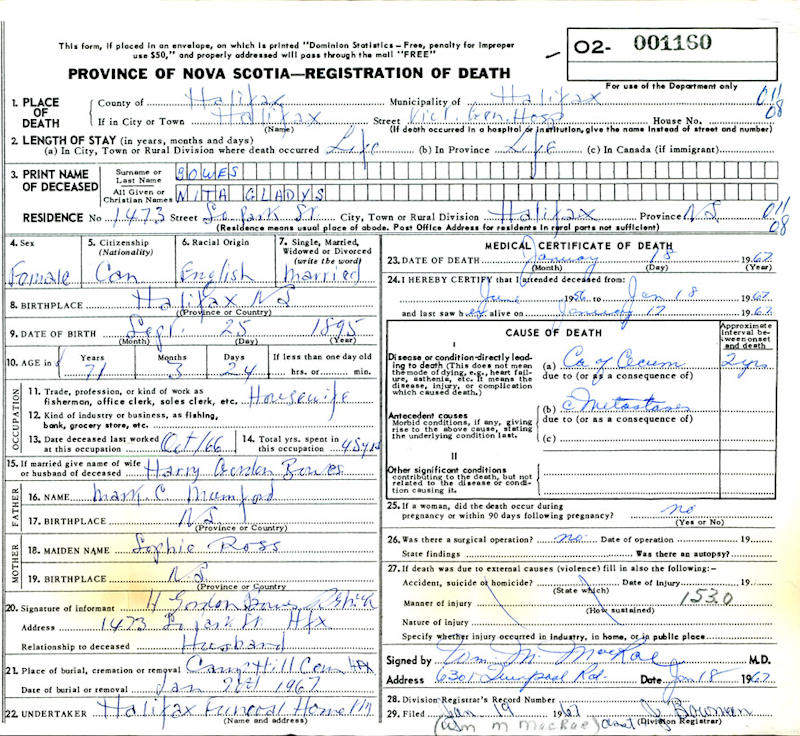 This form, if placed in an envelope, on which is printed "Dominion Statistics – Free, penalty for improper
use $50," and properly addressed will pass through the mail "FREE"
02- 001160
PROVINCE OF NOVA SCOTIA—REGISTRATION OF DEATH
For use of the Department only
1. PLACE OF DEATH County of Halifax Municipality of Halifax 011
If in City or Town Halifax Street Vict. Gen. Hosp House No. 08
(Name) (If death occurred in a hospital or institution, give the name instead of street and number)
2. LENGTH OF STAY (in years, months and days)
(a) In City, Town or Rural Division where death occurred Life (b) In Province Life (c) In Canada (if immigrant)
3. PRINT NAME OF DECEASED Surname or Last Name BOWES
All Given or Christian Names NITA GLADYS
RESIDENCE No 1473 Street So. Park St City, Town or Rural Division Halifax Province N.S. 011
(Residence means usual place of abode. Post Office Address for residents in rural parts not sufficient) 08
4. Sex 5. Citizenship (Nationality) 6. Racial Origin 7. Single, Married, Widowed or Divorced (write the word)
Female Can English Married
8. BIRTHPLACE Halifax NS
(Province or Country)
9. DATE OF BIRTH Sept. 25 1895
(Month) (Day) (Year)
10. AGE in Years Months Days If less than one day old
71 3 24 hrs. or min.
OCCUPATION
11. Trade, profession, or kind of work as
fisherman, office clerk, sales clerk, etc. Housewife
12. Kind of industry or business, as fishing,
bank, grocery store, etc.
13. Date deceased last worked at this occupation Oct/66 14. Total yrs. spent in this occupation 45 yrs
15. If married give name of wife or husband of deceased Harry Gordon Bowes
FATHER
16. NAME Mark C Mumford
17. BIRTHPLACE N.S.
(Province or Country)
MOTHER
18. MAIDEN NAME Sophie Ross
19. BIRTHPLACE N.S.
(Province or Country)
20. Signature of informant H Gordon Bowes
Address 1473 So park St Hfx
Relationship to deceased Husband
21. Place of burial, cremation or removal Camp Hill Cem Hfx
Date of burial or removal Jan 1967
22. UNDERTAKER Halifax Funeral Home
(Name and address)
MEDICAL CERTIFICATE OF DEATH
23. DATE OF DEATH January 18 1967
(Month) (Day) (Year)
24. I HEREBY CERTIFY that I attended deceased from:
June 1956 to Jan 18 1967
and last saw her alive on January 17 1967
CAUSE OF DEATH Approximate interval between onset and death
I
Disease or condition directly leading to death (This does not mean the mode of dying, e.g., heart failure, asthenia, etc. It means the disease, injury, or complication which caused death.)
(a) Ca of Cecum 2 yrs
due to (or as a consequence of)
Antecedent causes
Morbid conditions, if any, giving rise to the above cause, stating the underlying condition last.
(b) c Metastases
due to (or as a consequence of)
(c)
II
Other significant conditions
contributing to the death, but not related to the disease or condition causing it.
25. If a woman, did the death occur during
pregnancy or within 90 days following pregnancy? no
(Yes or No)
26. Was there a surgical operation? no Date of operation 19
State findings Was there an autopsy?
27. If death was due to external causes (violence) fill in also the following:-
Accident, suicide or homicide? Date of injury 19
(State which)
Manner of injury 1530
(How sustained)
Nature of injury
Specify whether injury occurred in industry, in home, or in public place
Signed by Wm. M. MacRae M.D.
Address 6301 Liverpool Rd. Date Jan 18 1967
28. Division Registrar's Record Number
29. Filed Jan 19 1967 J Bowman
(Wm M MacRae) (Division Registrar)